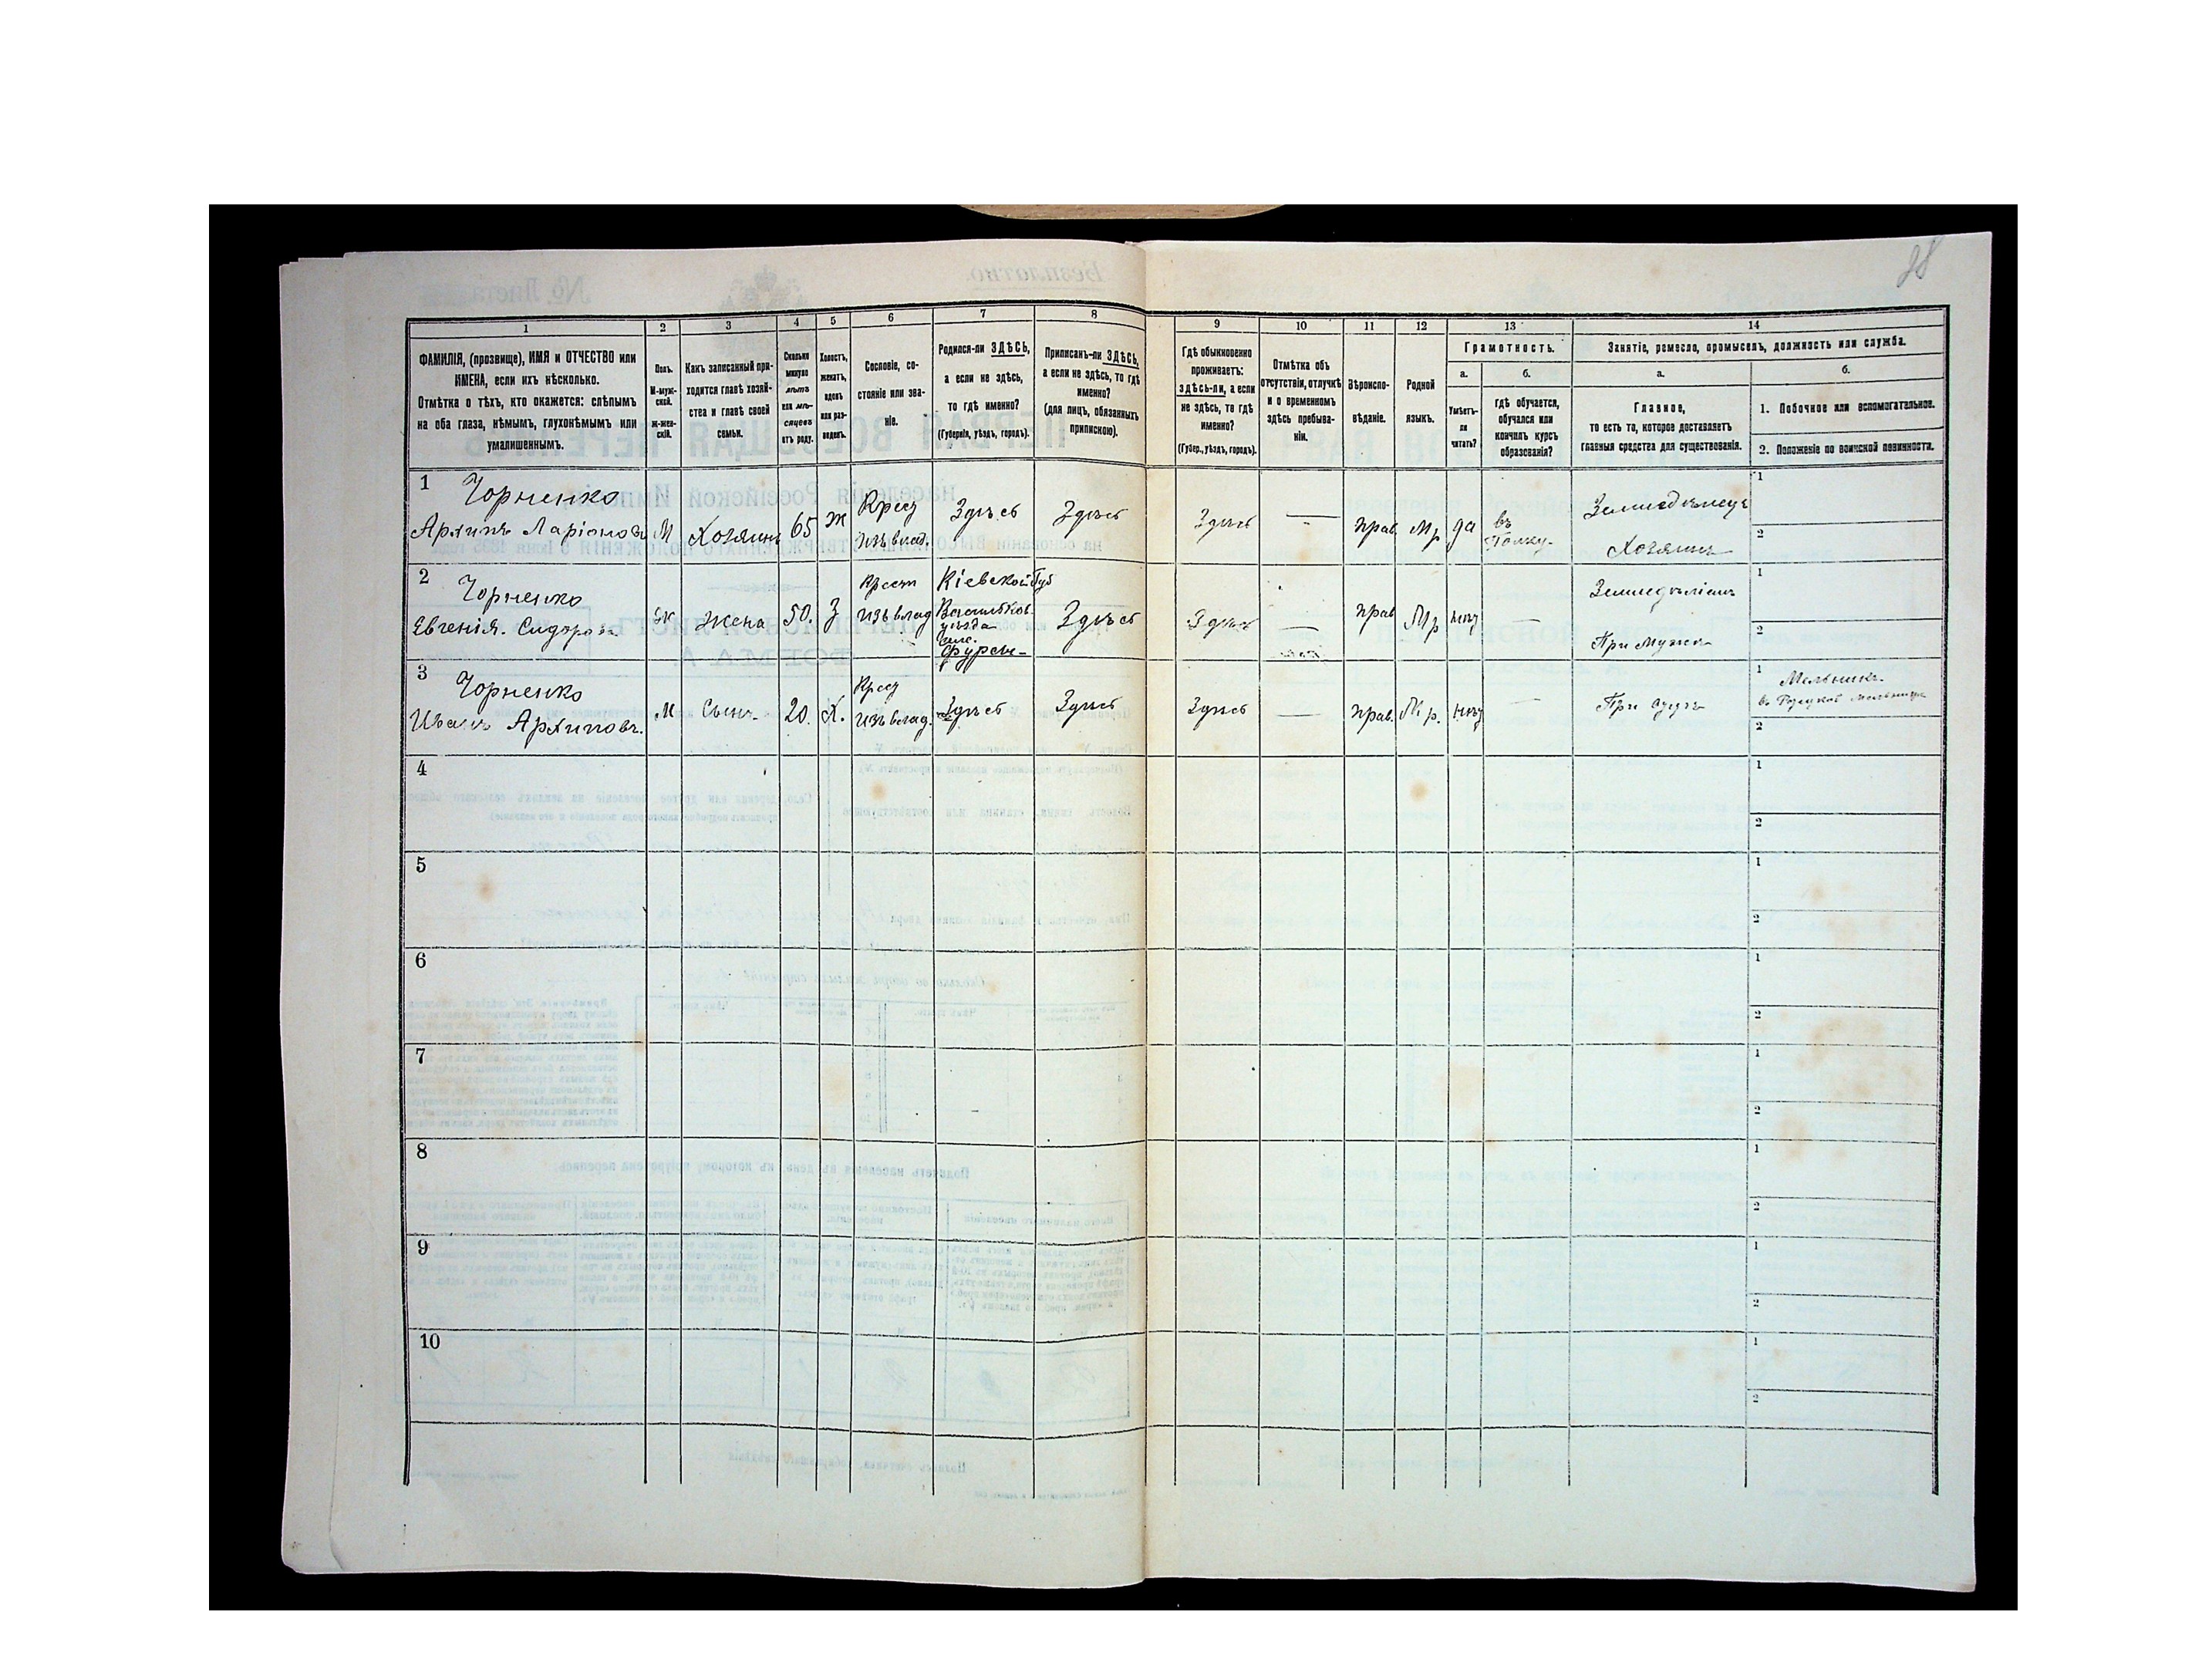 28
1 2 3 4 5 6 7 8 9 10 11 12 13 14
ФАМИЛІЯ, (прозвище), ИМЯ и ОТЧЕСТВО или
ИМЕНА, если ихъ нѣсколько.
Отмѣтка о тѣхъ, кто окажется: слѣпымъ
на оба глаза, нѣмымъ, глухонѣмымъ или
умалишеннымъ.
Полъ.
М-муж-
ской.
ж-жен-
скій.
Какъ записанный при-
ходится главѣ хозяй-
ства и главѣ своей
семьи.
Сколько
минуло
лѣтъ
или мѣ-
сяцевъ
отъ роду.
Холостъ,
женатъ,
вдовъ
или раз-
веденъ.
Сословіе, со-
стояніе или зва-
ніе.
Родился-ли ЗДѢСЬ,
а если не здѣсь,
то гдѣ именно?
(Губернія, уѣздъ, городъ).
Приписанъ-ли ЗДѢСЬ,
а если не здѣсь, то гдѣ
именно?
(для лицъ, обязанныхъ
припискою).
Гдѣ обыкновенно
проживаетъ:
здѣсь-ли, а если
не здѣсь, то гдѣ
именно?
(Губер., уѣздъ, городъ).
Отмѣтка объ
отсутствіи, отлучкѣ
и о временномъ
здѣсь пребыва-
ніи.
Вѣроиспо-
вѣданіе.
Родной
языкъ.
Грамотность.
а. б.
Умѣетъ-
ли
читать?
гдѣ обучается,
обучался или
кончилъ курсъ
образованія?
Занятіе, ремесло, промыселъ, должность или служба.
а. б.
Главное,
то есть то, которое доставляетъ
главныя средства для существованія.
1. Побочное или вспомогательное.
2. Положеніе по воинской повинности.
1 Чорненко
Архипъ Ларіоновъ М Хозяинъ 65 ж Крест
изъ влад. Здѣсь Здѣсь Здѣсь — прав. Мр да въ
Полку. Земледѣлецъ
Хозяинъ 1
2
2 Чорненко
Евгенія. Сидорова Ж Жена 50. З Крест
изъ влад Кіевской Губ
Васильков.
уѣзда
Фурсы Здѣсь Здѣсь — прав Мр нѣт — Земледѣліемъ
При Мужѣ 1
2
3 Чорненко
Иванъ Архиповъ. М Сынъ. 20. Х. Крест
изъ влад. Здѣсь Здѣсь Здѣсь — прав. Мр. нѣт — При отцѣ 1 Мельникъ.
2
4 1
2
5 1
2
6 1
2
7 1
2
8 1
2
9 1
2
10 1
2